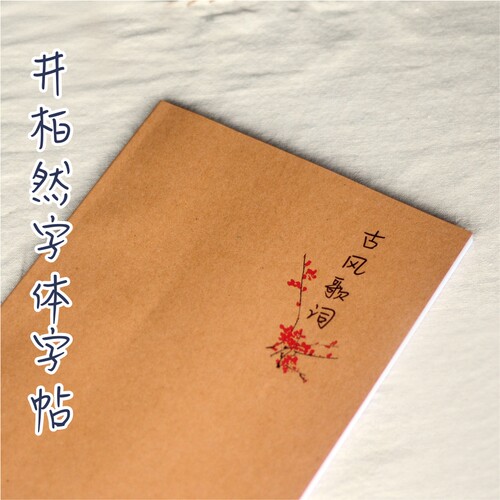 井柏然字体字帖
古风歌词